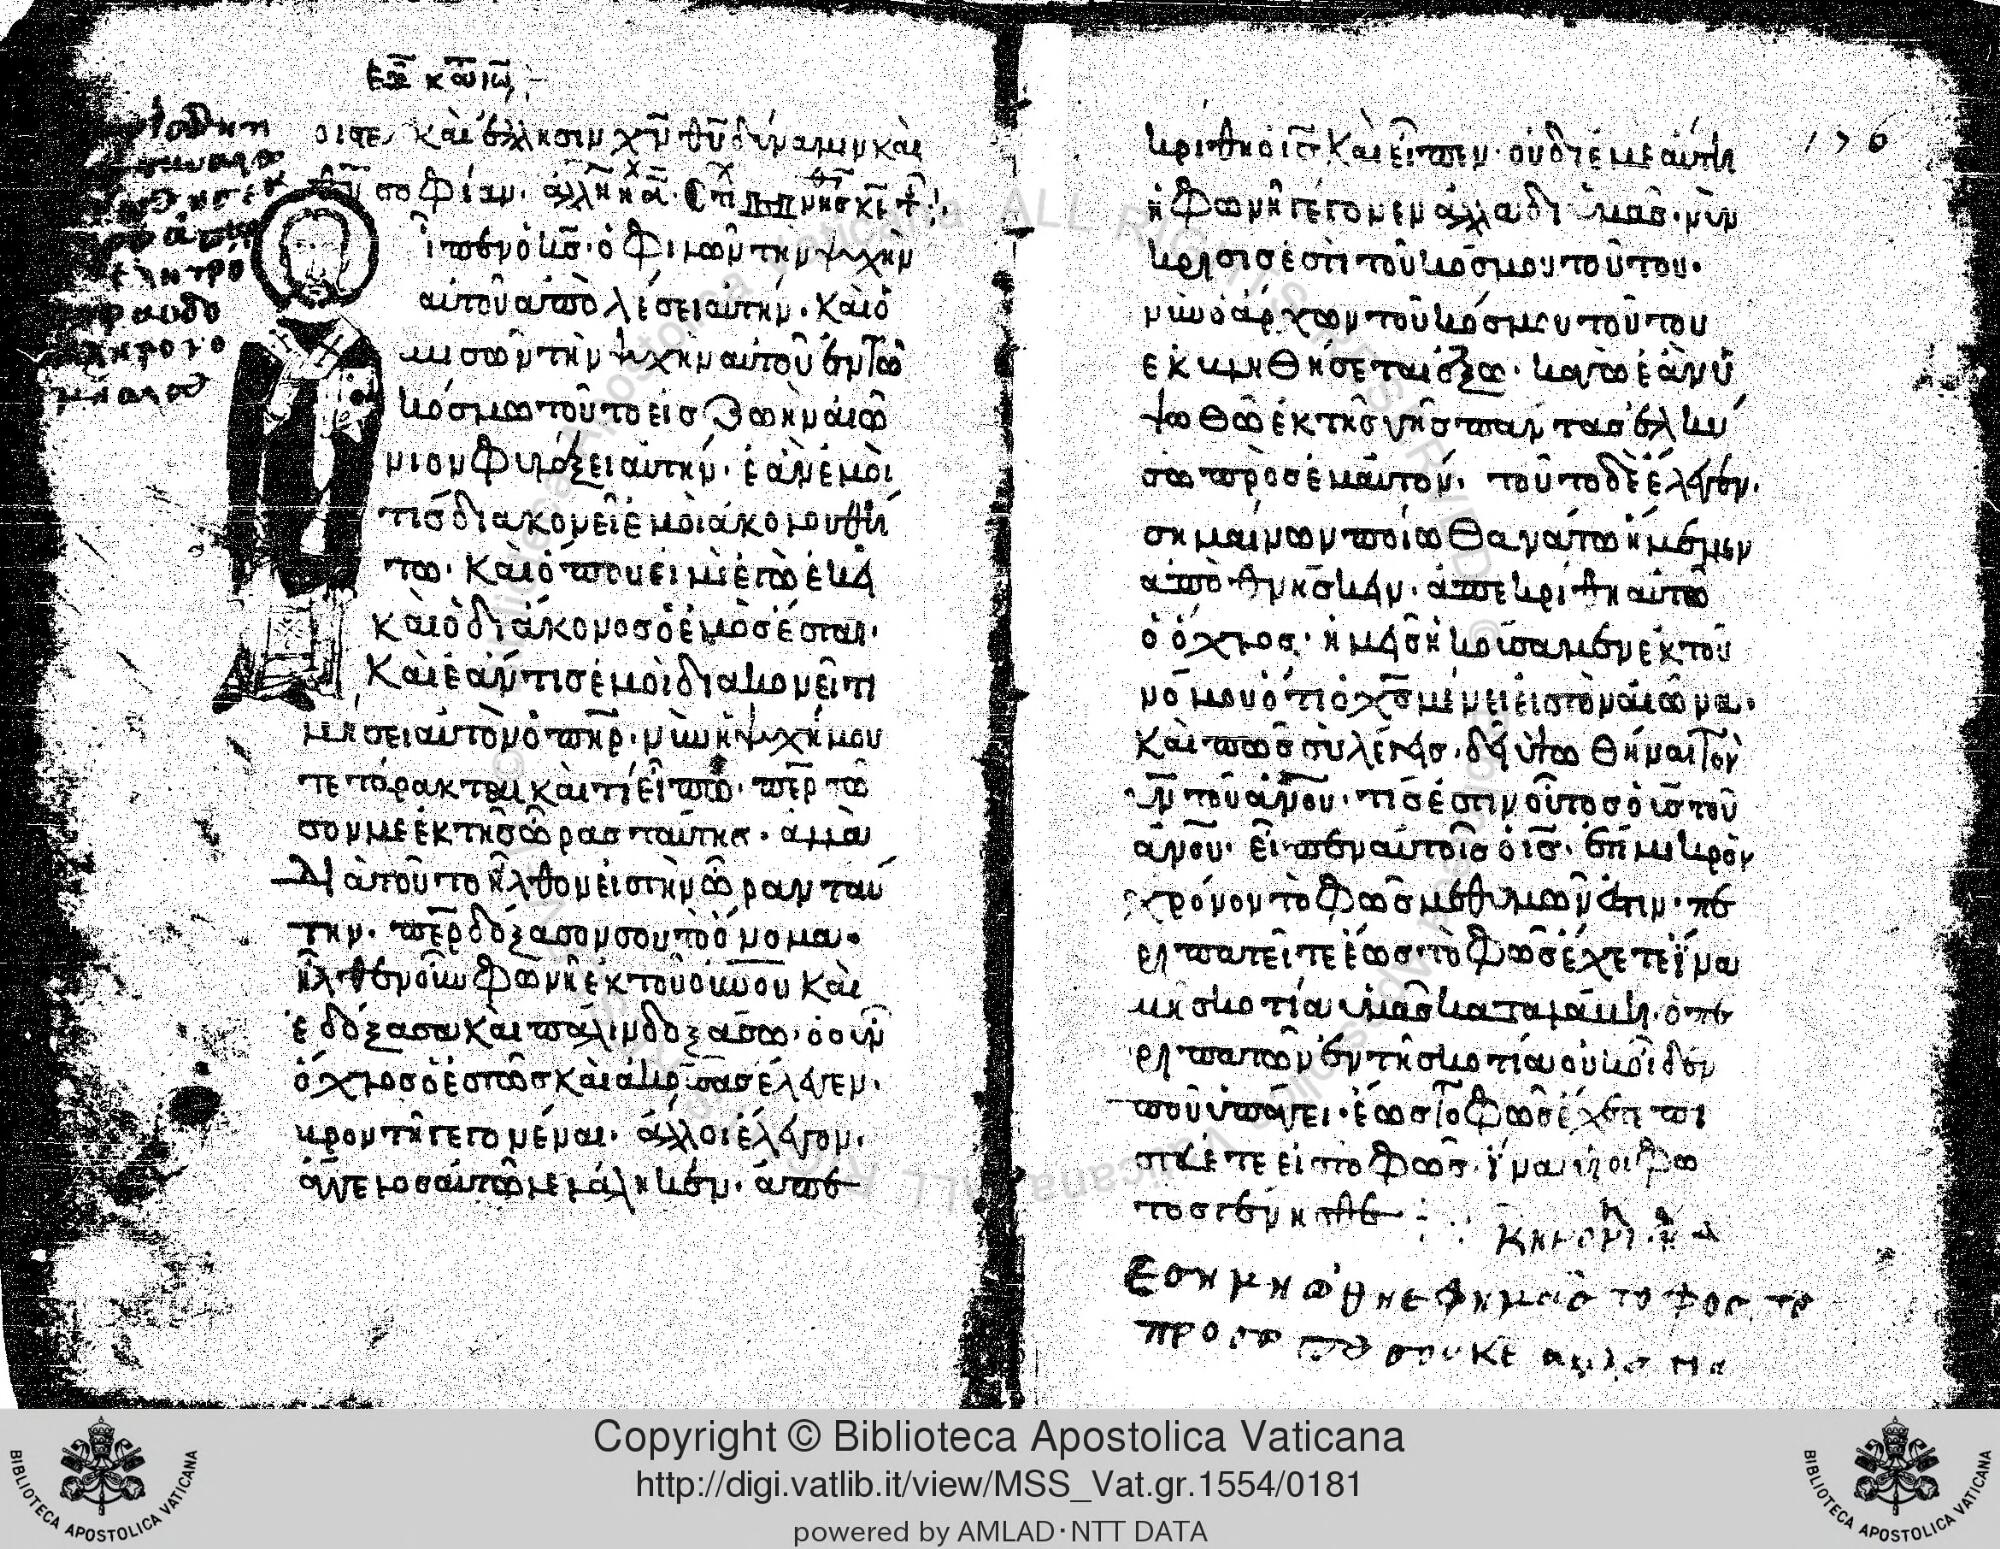 οισ κὰι ἕλλησιν χ̅ν̅ θ̅υ̅ δύναμιν κὰι
θ̅υ̅ σοφίαν.
εἶπεν ὁ κ̅ς̅· ὁ φιλῶν τὴν ψυχὴν
αὐτοῦ ἀπολέσει αὐτήν· κὰι ὁ
μισῶν τὴν ψυχὴν αὐτοῦ ἐν τῶ
κόσμω τοῦτο εἰσ ζωὴν αἰώ
νιον φυλάξει αὐτήν· ἐὰν ἐμὸι
τίσ διακονεῖ ἐμὸι ἀκολουθεί
τω· κὰι ὅπου εἰμὶ ἐγὼ ἐκεῖ
κὰι ὁ διάκονοσ ὁ ἐμὸσ ἔσται·
κὰι ἐάν τισ ἐμὸι διακονεῖ τι
μήσει αὐτὸν ὁ π̅η̅ρ̅· νῦν ἡ ψυχή μου
τετάρακται κὰι τί εἴπω· π̅ε̅ρ̅ σῶ
σον με ἐκ τῆσ ὥρασ ταύτησ· ἀλλὰ
διὰ τοῦτο ἦλθον εἰσ τὴν ὥραν ταύ
την· π̅ε̅ρ̅ δόξασον σου τὸ ὄνομα·
ἦλθεν οὖν φωνὴ ἐκ τοῦ οὐ̅ν̅ου κὰι
ἐδόξασα κὰι πάλιν δοξάσω· ὁ οὖν
ὄχλοσ ὁ ἑστὼσ κὰι ἀκούσασ ἔλεγεν·
βροντὴ γεγονέναι· ἄλλοι ἔλεγον·
ἄγγελοσ αὐτῶ λελάληκεν· ἀπε
κρίθη ὁ ι̅ς̅ κὰι εἶπεν· οὐ δι ἐμὲ αὕτη
ἡ φωνὴ γέγονεν ἀλλα δι ὑμᾶσ· νῦν
κρίσισ ἐστὶ τοῦ κόσμου τούτου·
νῦν ὁ ἄρχων τοῦ κόσμου τούτου
ἐκβληθήσεται ἔξω· κἀγὼ ἐὰν ὑ
ψωθῶ ἐκ τῆσ γῆσ πάντασ ἑλκύ
σω πρὸσ ἐμαυτόν· τοῦτο δὲ ἔλεγον·
σημαίνων ποίω θανάτω ἤμελλεν
ἀποθνήσκειν· ἀπεκρίθη αὐτῶ
ὁ ὄχλοσ· ἡμεῖσ ἠκούσαμεν ἐκ τοῦ
νόμου ὅτι ὁ χ̅ς̅ μένει εἰσ τὸν αἰῶνα·
κὰι πῶσ σὺ λέγεισ· δεῖ ὑψωθῆναι τὸν
υ̅ν̅ τοῦ ἀ̅ν̅ου· τίσ ἐστιν οὗτοσ ὁ υ̅ς̅ τοῦ
ἀ̅ν̅ου· εἶπεν αὐτοῖσ ὁ ι̅ς̅· ἔτι μικρὸν
χρόνον τὸ φῶσ μεθ ὑμῶν ἐστιν· πε
ριπατεῖτε ἕωσ τὸ φῶσ ἔχετε ἵνα
μὴ σκοτία ὑμᾶσ καταλάβη· ὁ πε
ριπατῶν ἐν τῆ σκοτία οὐκ οἶδεν
ποῦ ὑπάγει· ἕωσ τὸ φῶσ ἔχετε πι
στεύετε εἰσ τὸ φῶσ· ἵνα υἱοι φω
τοσ γένησθε
Εσημηόθηεφημασ το φοσ του
προσοπου σου κε
176
Copyright © Biblioteca Apostolica Vaticana
http://digi.vatlib.it/view/MSS_Vat.gr.1554/0181
powered by AMLAD·NTT DATA
BIBLIOTECA APOSTOLICA VATICANA
BIBLIOTECA APOSTOLICA VATICANA